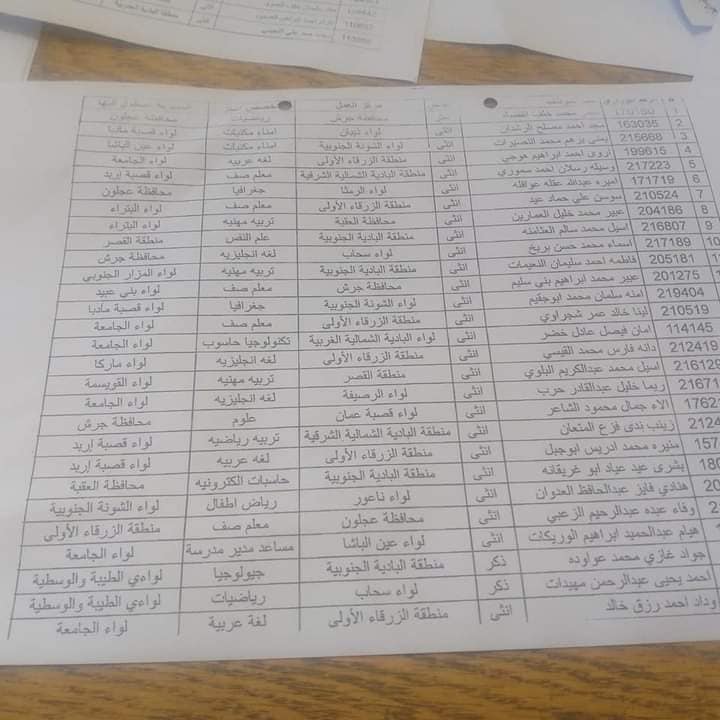 محافظة عجلون رياضيات محافظة جرش
2 163035 مجد احمد مصلح الرشدان انثى لواء ذيبان امناء مكتبات لواء قصبة مادبا
3 215668 يمنى برهم محمد النصيرات انثى لواء الشونة الجنوبية امناء مكتبات لواء عين الباشا
4 199615 اروى احمد ابراهيم هوجي انثى منطقة الزرقاء الأولى لغه عربيه لواء الجامعة
5 217223 وسيله رسلان احمد سموري انثى منطقة البادية الشمالية الشرقية معلم صف لواء قصبة إربد
6 171719 اميره عبدالله عقله عواقله انثى لواء الرمثا جغرافيا محافظة عجلون
7 210524 سوسن علي حماد عيد انثى منطقة الزرقاء الأولى معلم صف لواء البتراء
8 204186 عبير محمد خليل العمارين انثى محافظة العقبة تربيه مهنيه لواء البتراء
9 216807 اسيل محمد سالم العثامنه انثى منطقة البادية الجنوبية علم النفس منطقة القصر
10 217189 اسماء محمد حسن بريخ انثى لواء سحاب لغه انجليزيه محافظة جرش
205181 فاطمه احمد سليمان النعيمات انثى منطقة البادية الجنوبية تربيه مهنيه لواء المزار الجنوبي
201275 عبير محمد ابراهيم بني سليم انثى محافظة جرش معلم صف لواء بني عبيد
219404 امنه سلمان محمد ابوجقيم انثى لواء الشونة الجنوبية جغرافيا لواء قصبة مادبا
210519 لينا خالد عمر شجراوي انثى منطقة الزرقاء الأولى معلم صف لواء الجامعة
114145 امان فيصل عادل خضر انثى لواء البادية الشمالية الغربية تكنولوجيا حاسوب لواء الجامعة
212419 دانه فارس محمد القيسي انثى منطقة الزرقاء الأولى لغه انجليزيه لواء ماركا
216129 اسيل محمد عبدالكريم البلوي انثى منطقة القصر تربيه مهنيه لواء القويسمة
21671 ريما خليل عبدالقادر حرب انثى لواء الرصيفة لغه انجليزيه لواء الجامعة
1762 الاء جمال محمود الشاعر انثى لواء قصبة عمان علوم محافظة جرش
2124 زينب ندى فزع المتعان انثى منطقة البادية الشمالية الشرقية تربيه رياضيه لواء قصبة إربد
157 منيره محمد ادريس ابوجبل انثى منطقة الزرقاء الأولى لغه عربيه لواء قصبة إربد
180 بشرى عيد عياد ابو غريقانه انثى منطقة البادية الجنوبية حاسبات الكترونيه محافظة العقبة
20 هنادي فايز عبدالحافظ العدوان انثى لواء ناعور رياض اطفال لواء الشونة الجنوبية
وفاء عبده عبدالرحيم الزعبي انثى محافظة عجلون معلم صف منطقة الزرقاء الأولى
هيام عبدالحميد ابراهيم الوريكات انثى لواء عين الباشا مساعد مدير مدرسة لواء الجامعة
جواد غازي محمد عواوده ذكر منطقة البادية الجنوبية جيولوجيا لواءي الطيبة والوسطية
احمد يحيى عبدالرحمن مهيدات ذكر لواء سحاب رياضيات لواءي الطيبة والوسطية
وداد احمد رزق خالد انثى منطقة الزرقاء الأولى لغة عربية لواء الجامعة